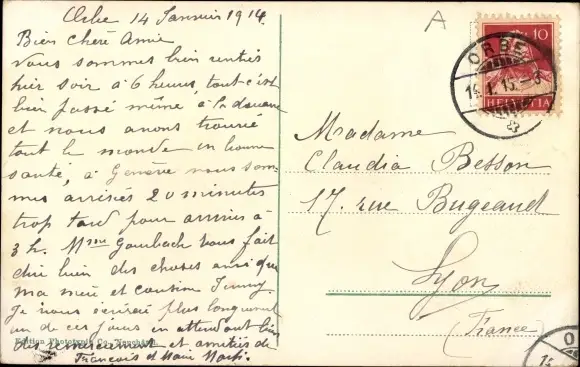 Orbe 14 Janvier 1914
Bien chère Amie
Nous sommes bien rentrés
hier soir à 6 heures, tout s'est
bien passé même à la douane
et nous avons trouvé
tout le monde en bonne
santé, à Genève nous som-
mes arrivés 20 minutes
trop tard pour arriver à
3 h. Mme Gombach vous fait
dire bien des choses ainsi que
ma mère et cousine Jenny
Je vous écrirai plus longuement
un de ces jours en attendant bien
des remerciement et amitiés de
François et Marie
Edition Phototypie Co., Neuchâtel
A
HELVETIA
10
ORBE
14.I.15.-8
Madame
Claudia Besson
17. rue Bugeaud
Lyon
(France)
O